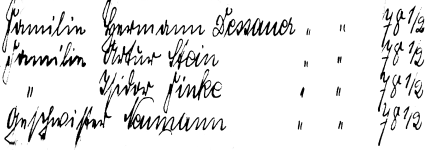 Familie Hermann Dessauer " " 78 1/2
Familie Artur Stein " " 78 1/2
" Isidor Finke " " 78 1/2
Geschwister Naumann " " 78 1/2